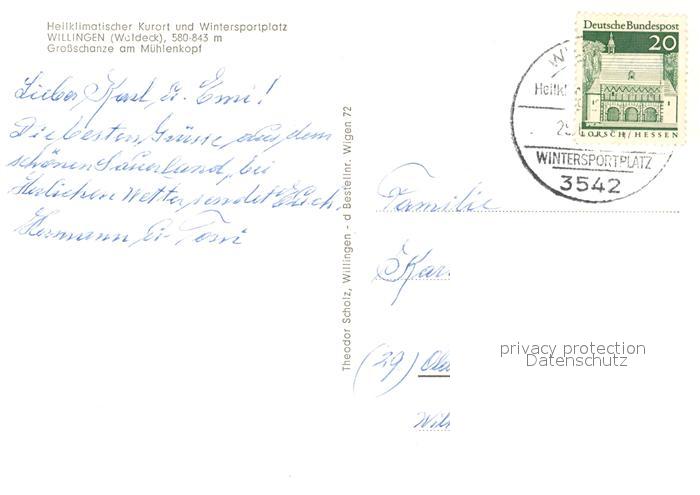 Heilklimatischer Kurort und Wintersportplatz
WILLINGEN (Waldeck), 580-843 m
Großschanze am Mühlenkopf
Lieber Karl, u. Emi!
Die besten Grüsse aus dem
schönen Sauerland, bei
Herlichen Wetter sendet Euch
Hermann u. Toni
Theodor Scholz, Willingen - d Bestellnr. Wigen 72
Deutsche Bundespost
20
LORSCH / HESSEN
Heilkl
WINTERSPORTPLATZ
3542
Familie
Kar
(29)
privacy protection
Datenschutz